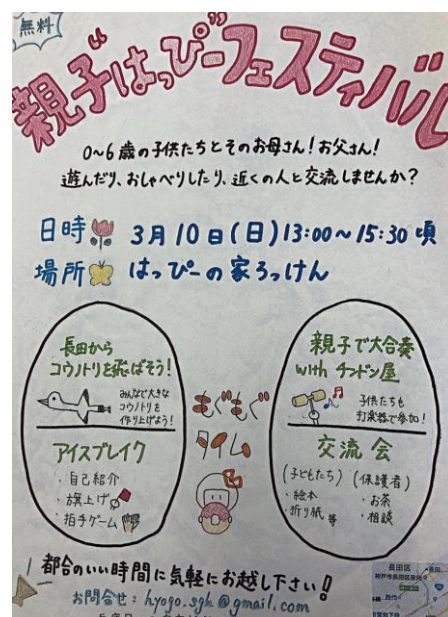 無料
親子“はっぴー”フェスティバル
0~6歳の子供たちとそのお母さん!お父さん!
遊んだり、おしゃべりしたり、近くの人と交流しませんか?
日時 3月10日(日)13:00~15:30頃
場所 はっぴーの家ろっけん
長田から
コウノトリを飛ばそう!
みんなで大きな
コウノトリを
作り上げよう!
アイスブレイク
・自己紹介
・旗上げ
・拍手ゲーム
もぐもぐ
タイム
親子で大合奏
with チンドン屋
子供たちも
打楽器で参加!
交流会
(子どもたち)
・絵本
・折り紙 等
(保護者)
・お茶
・相談
都合のいい時間に気軽にお越し下さい!!
お問合せ:hyogo.sgh@gmail.com
長田区